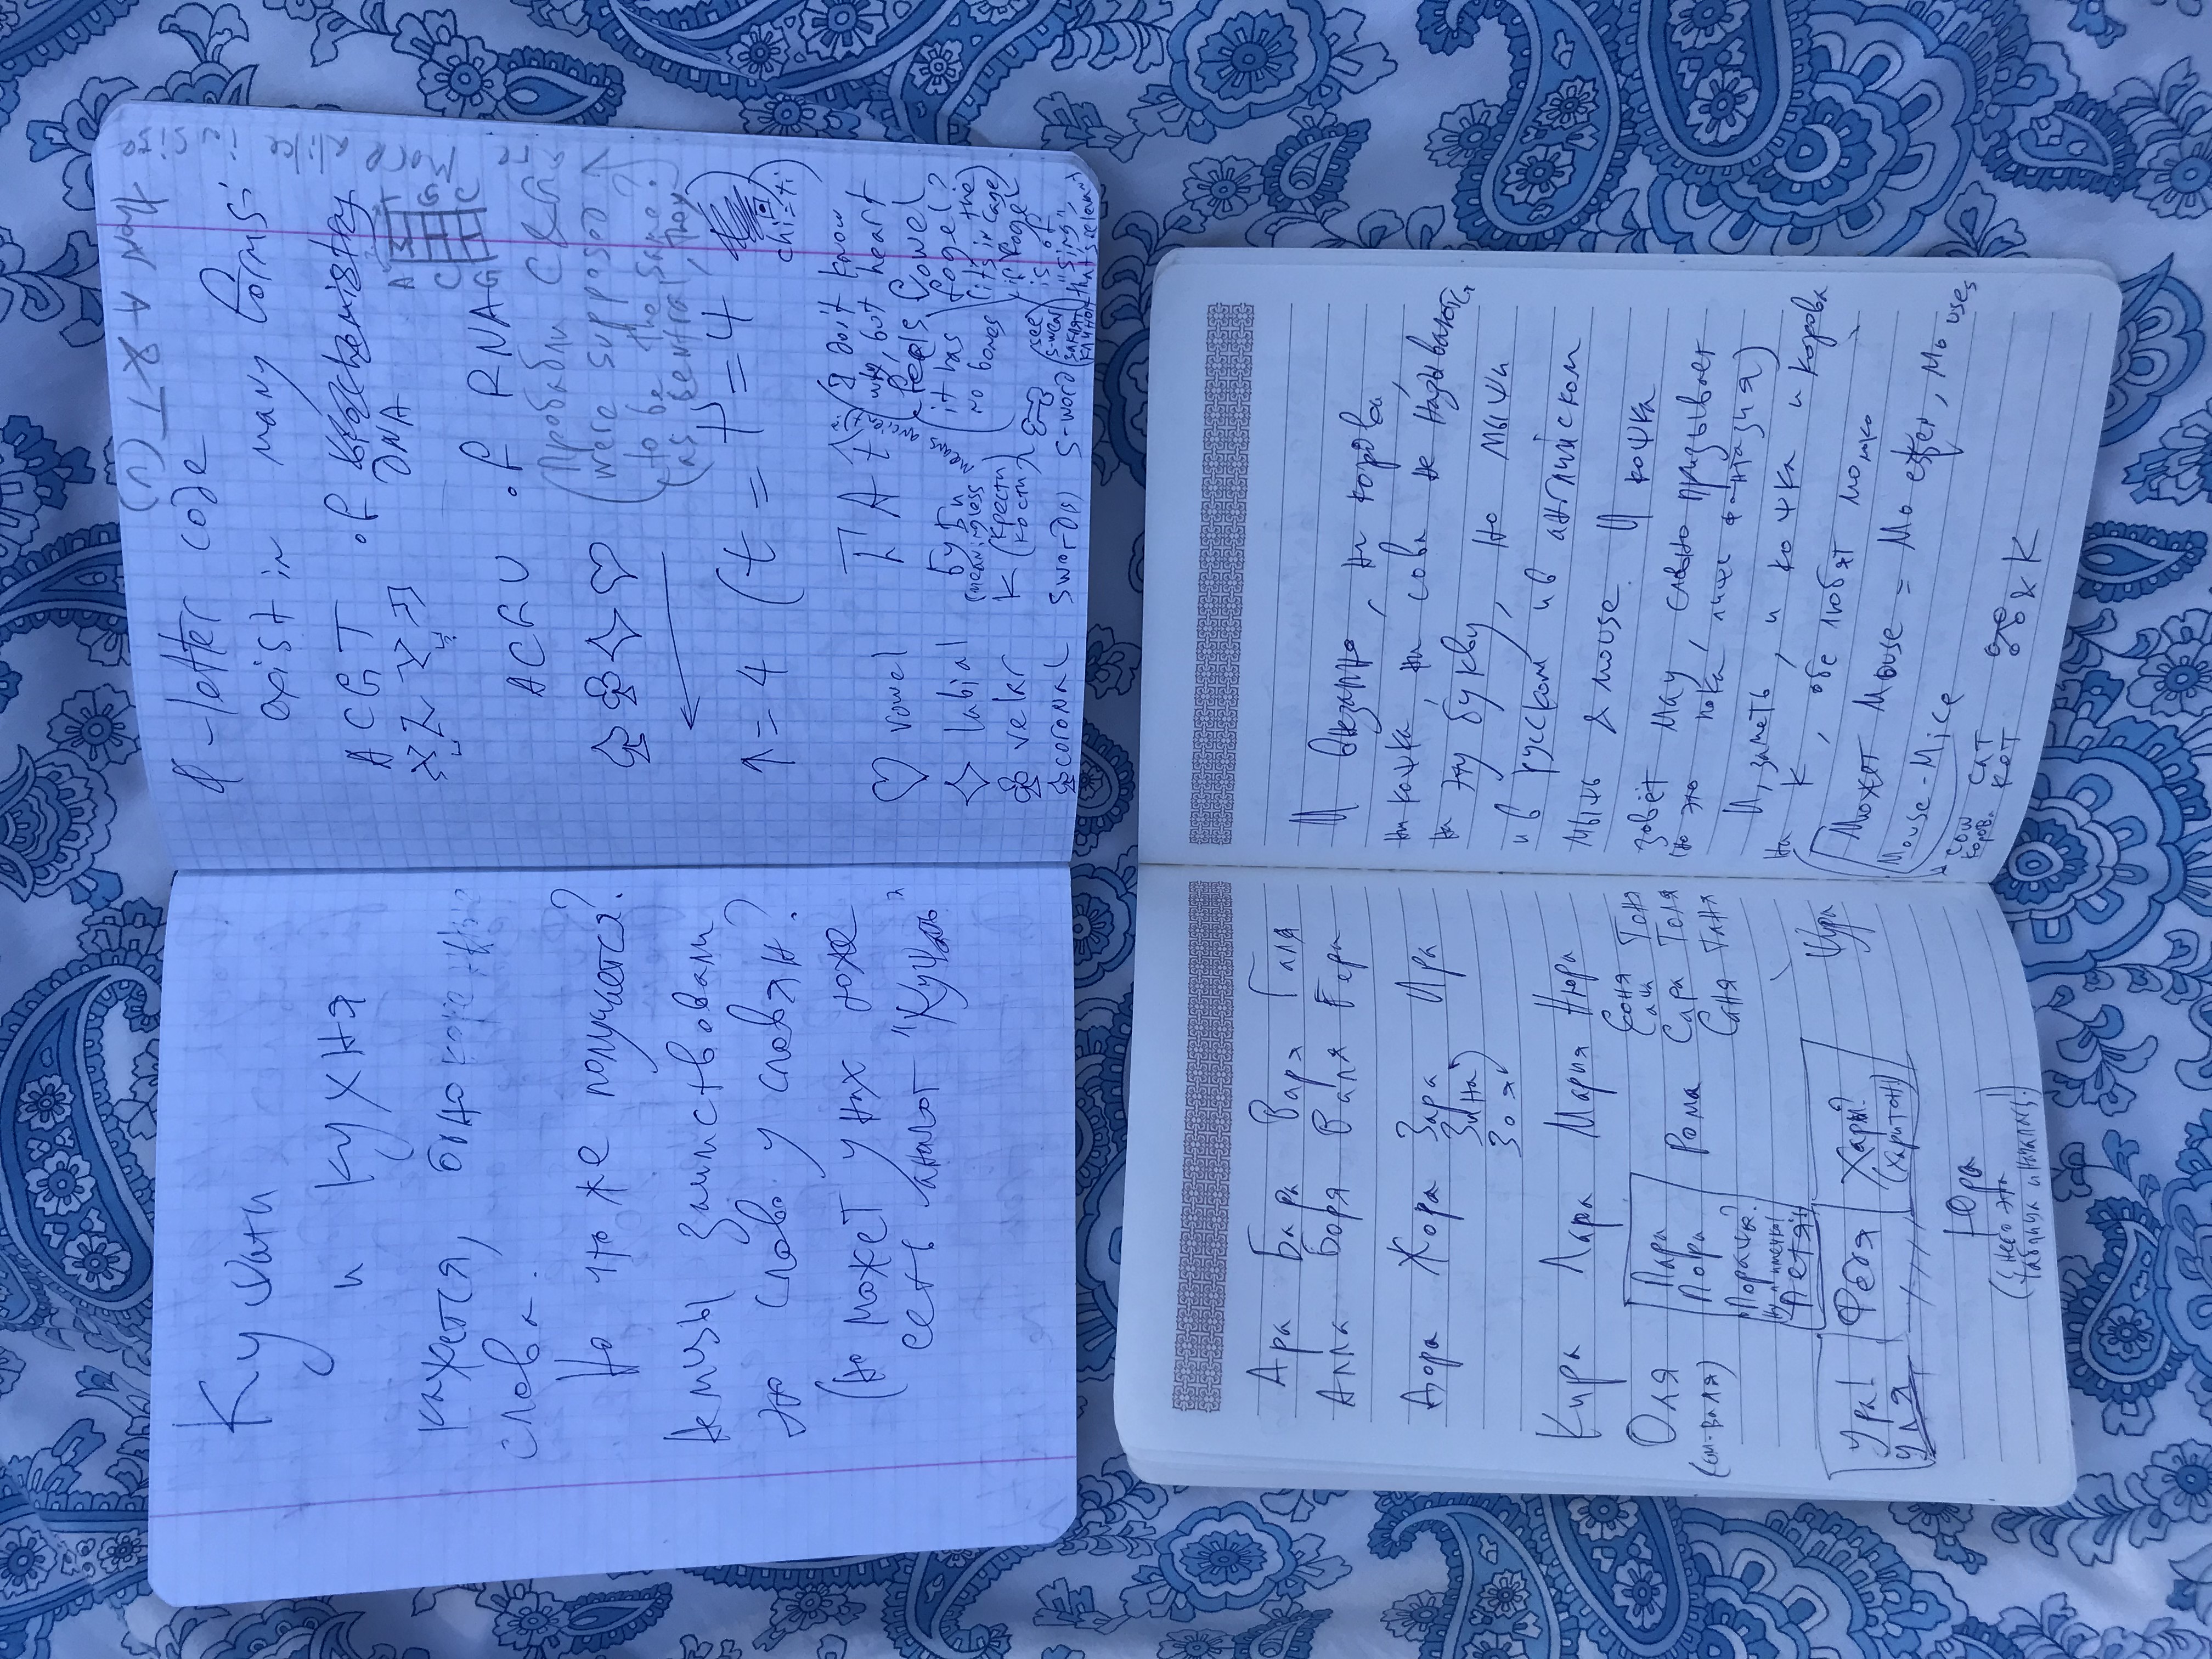 Кушати
и кухня
кажется, однокоренные
слова.
Но что же получается?
Немцы заимствовали
это слово у словян?
(Но может у них тоже
есть аналог "Кушать"
4-letter code
exist in many forms:
ACGT of
DNA
ACGU of RNA
A T
C G
G C
(Пробабли C&G
were supposed
to be the same?
(as central, they
are more alike inside
than A & T (U)
♠ ♣ ♦ ♡
←
↑ = 4 (t = T = 4
chi=ti)
♡ vowel
(I don't know
why, but heart
feels vowel
it has
no bones
fogel?
(it's in the
cage)
if fogel
is of
"sing",
that's relevant)
♦ labial буби
(meaningless
means ancient?
♣ velar K (крести
кости)
♠ coronal sword(s) s-word
(see
s-wear
заклят
клинок
Ара Бара Варя Галя
Алла Боря Валя Гера
Дора Жора Зара Ира
Зина
Зоя
Кира Лара Мария Нюра
Оля
(см. Валя)
Пара
Пора
Пораша?
Ну и имечко!
Петя!
Рома
Соня
Саша
Сара
Саня
Тоня
Толя
Таня
Ура!
Уля
Федя
Хары?
(Харитон)
Шура
Юра
(с него эта
таблица и началась!)
И внезапно, ни корова,
ни кошка, ни сова не называются
на эту букву, но мыши
и в русском и в английском
мышь & mouse. И кошка
зовёт мау, словно призывает
(но это пока лишь фантазия)
И, заметь, и кошка и корова
на К, обе любят молоко
Может Mouse = Mo esser, Mo uses
Mouse-Mice
cow cat
корова кот
& K